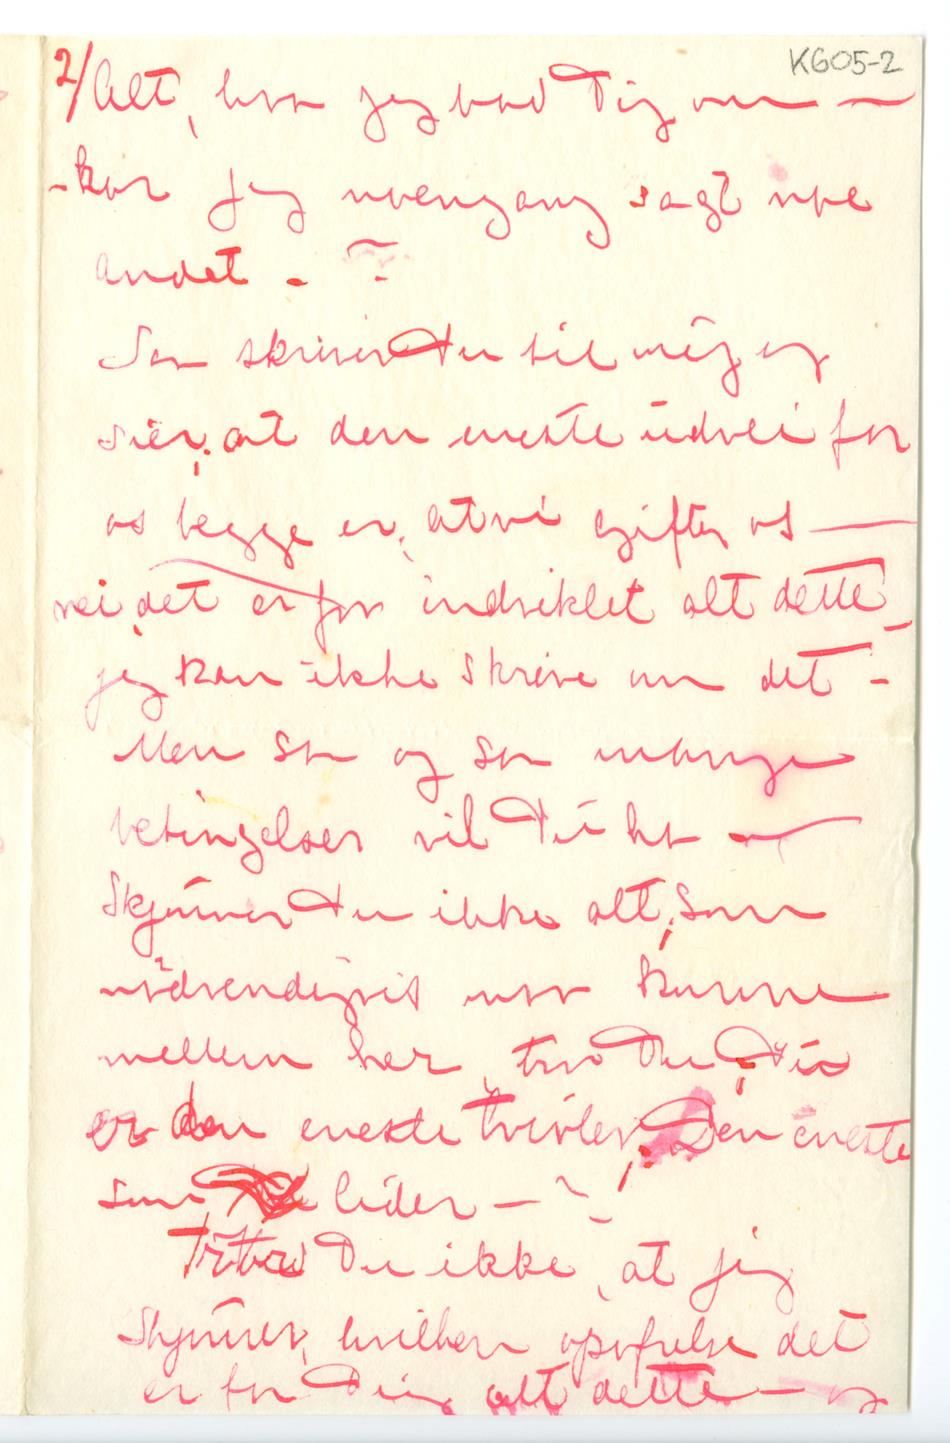 K605-2
2/ Alt, hva jeg bad Dig om —
- har jeg noengang sagt noe
andet - ~
Saa skriver Du til mig og
sier, at den eneste udvei for
os begge er, at vi gifter os —
nei, det er for indviklet alt dette,
jeg kan ikke skrive om det -
Men saa og saa mange
betingelser vil Du ha —
Skjønner Du ikke alt, som
nødvendigvis maa kunne
mellem her, tror Du, Du
er den eneste tviler, Den eneste
som lider — ~
Du ikke, at jeg
skjønner, hvilken opofrelse det
er for Dig alt dette — og